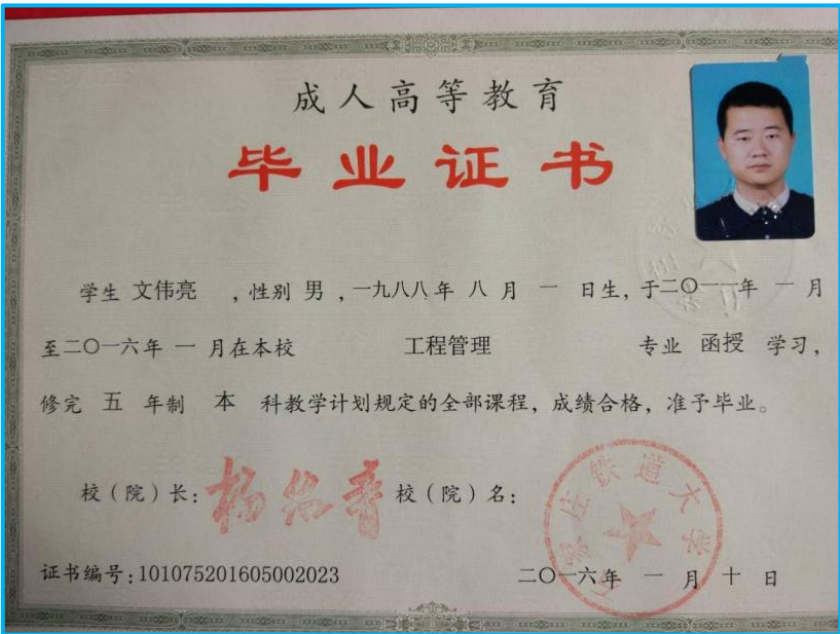 成人高等教育
毕业证书
学生 文伟亮 ，性别 男 ，一九八八年 八 月 一 日生，于二〇一一年 一 月
至二〇一六年 一 月在本校 工程管理 专业 函授 学习，
修完 五 年制 本 科教学计划规定的全部课程，成绩合格，准予毕业。
校（院）长： 校（院）名：
家庄铁道大学
证书编号:101075201605002023 二〇一六年 一 月 十 日